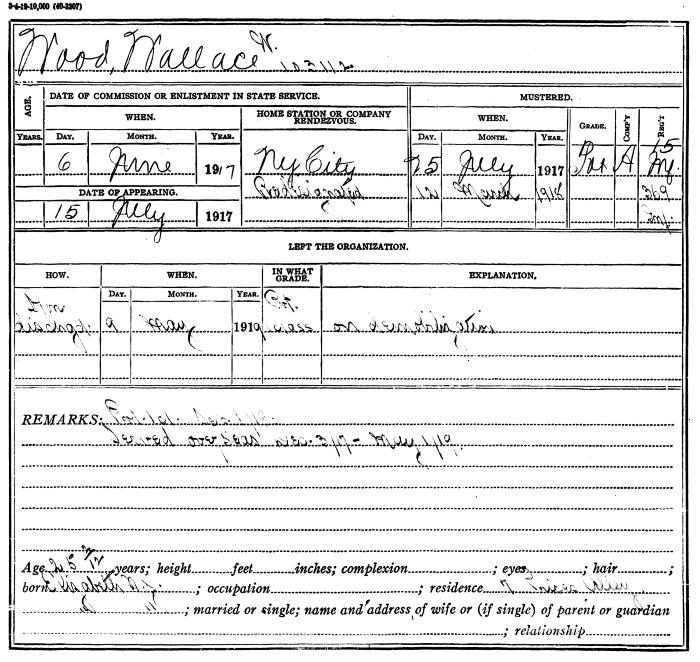 3-4-19-10,000 (40-3207)
Wood, Wallace W.
103112
AGE. DATE OF COMMISSION OR ENLISTMENT IN STATE SERVICE. MUSTERED.
WHEN. HOME STATION OR COMPANY RENDEZVOUS. WHEN. GRADE. COMP'Y REG'T
YEARS. DAY. MONTH. YEAR. DAY. MONTH. YEAR.
6 June 1917 NY City 25 July 1917 Pvt A 15 Inf.
DATE OF APPEARING. Redesignated 12 March 1918 369
15 July 1917 Inf.
LEFT THE ORGANIZATION.
HOW. WHEN. IN WHAT GRADE. EXPLANATION.
DAY. MONTH. YEAR. Pvt.
dischgd: 9 May 1919 1 class on demobilization
REMARKS: Pvt. 1cl. Sep. 1/18.
Served overseas Dec. 3/17 - May 1/19.
Age 25 2/12 years; height feet inches; complexion ; eyes ; hair ;
born Elizabeth N.J. ; occupation ; residence 7 Prices Alley
" " ; married or single; name and address of wife or (if single) of parent or guardian
; relationship